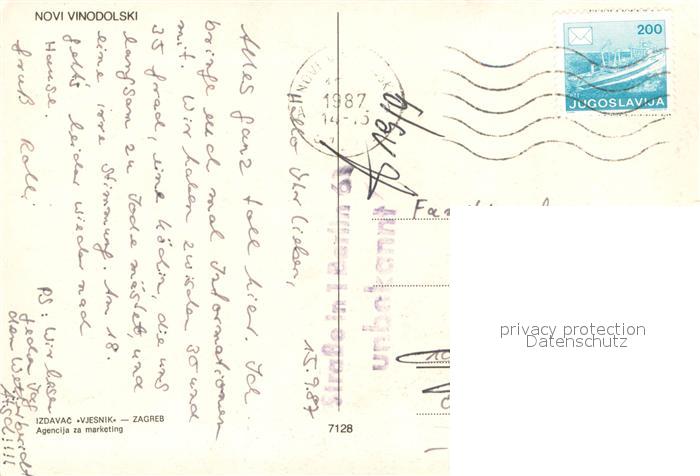 NOVI VINODOLSKI
15.9.87
Hallo Ihr Lieben,
Alles ganz toll hier. Ich
bringe euch mal Informationen
mit. Wir haben zwischen 30 und
35 Grad, eine Köchin, die uns
langsam zu Tode mästet, und
eine irre Stimmung. Am 18.
geht's leider wieder nach
Hause.
Gruß Rolli
PS: Wir lesen
jeden Tag
den Wetterbericht
IZDAVAČ »VJESNIK« — ZAGREB
Agencija za marketing
7128
1987
200
JUGOSLAVIJA
Straße in 1 Berlin
unbekannt
privacy protection
Datenschutz